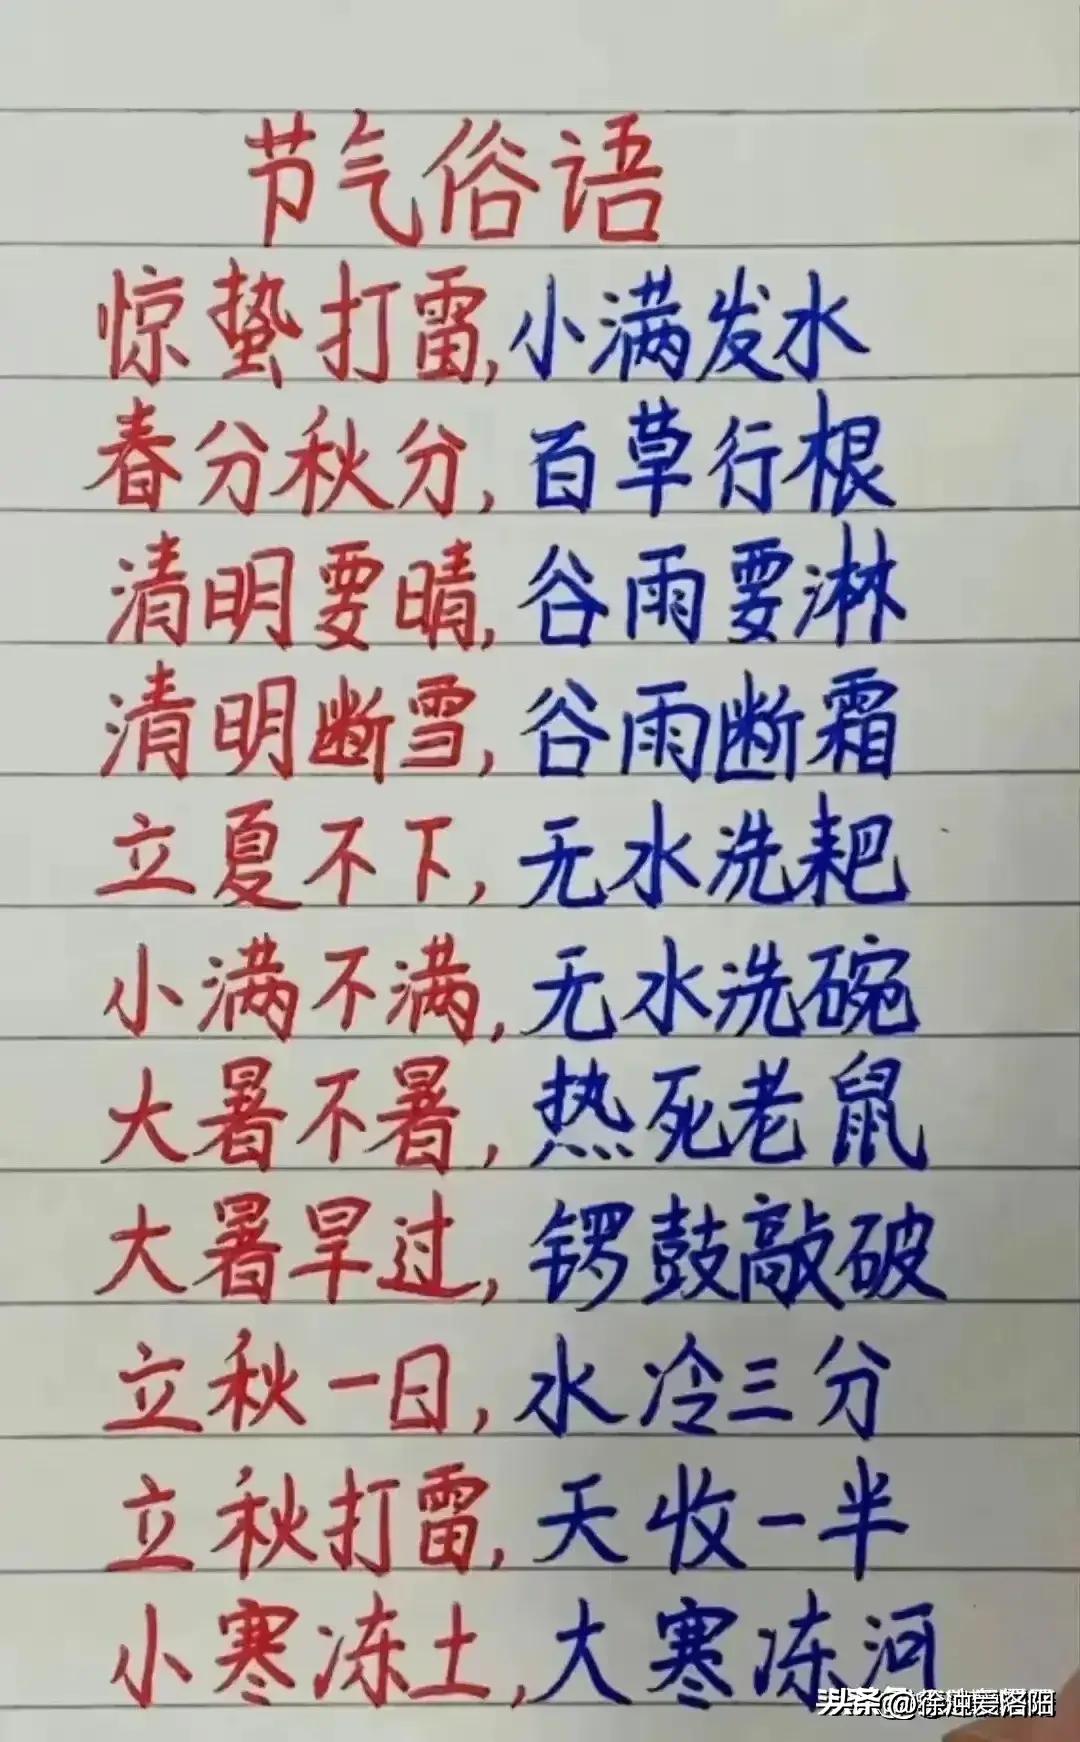 节气俗语
惊蛰打雷,小满发水
春分秋分,百草行根
清明要晴,谷雨要淋
清明断雪,谷雨断霜
立夏不下,无水洗耙
小满不满,无水洗碗
大暑不暑,热死老鼠
大暑旱过,锣鼓敲破
立秋一日,水冷三分
立秋打雷,天收一半
小寒冻土,大寒冻河
头条 @徐迪爱洛阳